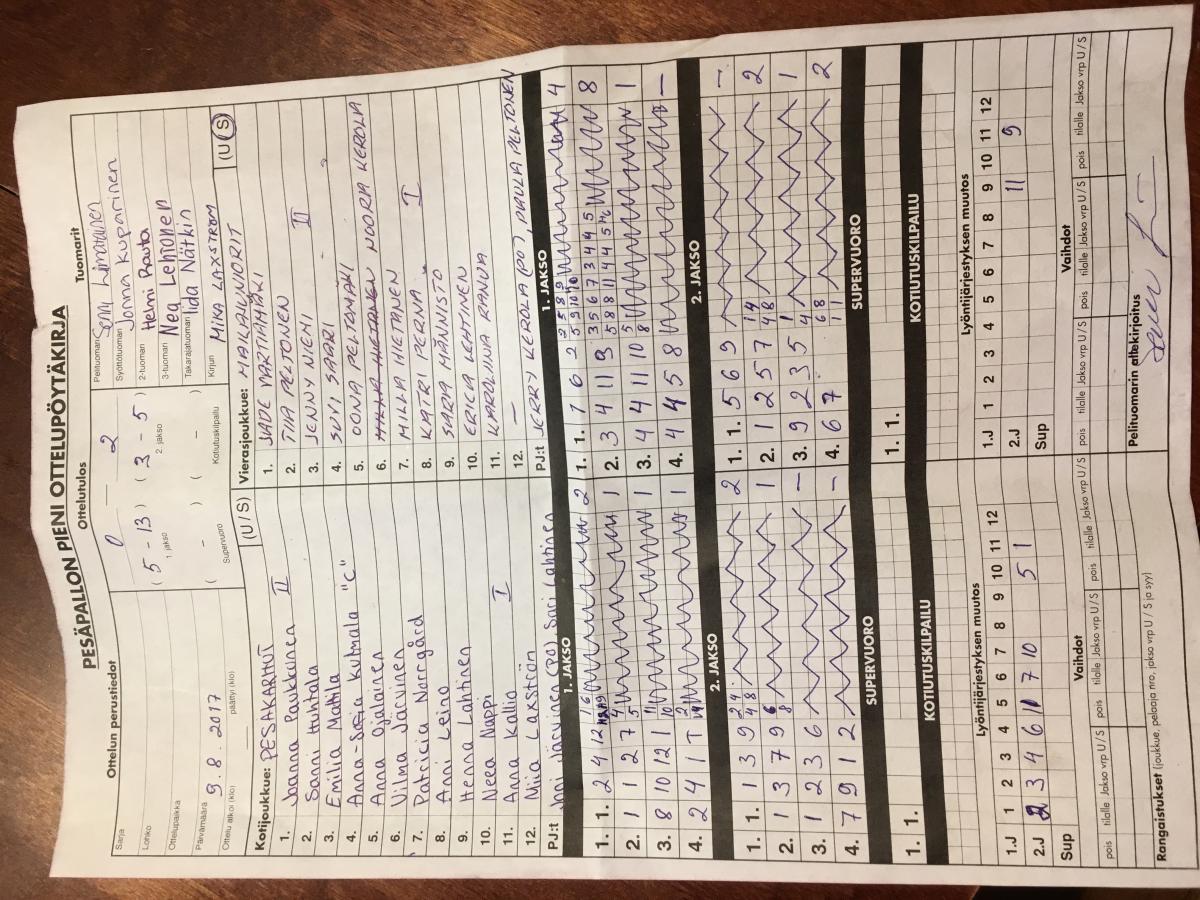 PESÄPALLON PIENI OTTELUPÖYTÄKIRJA
Ottelun perustiedot
Ottelutulos
Tuomarit
Sarja
Lohko
Ottelupaikka
Päivämäärä 9.8.2017
Ottelu alkoi (klo) päättyi (klo)
0 - 2
(5 - 13) (3 - 5)
1. jakso 2. jakso
( - ) ( - )
Supervuoro Kotiutuskilpailu
Pelituomari
Syöttötuomari Jonna Kuparinen
2-tuomari Henni Rauta
3-tuomari Nea Lehtonen
Takarajatuomari Iida Nätkin
Kirjuri MIKA LAXSTRÖM
Kotijoukkue: PESÄKARHUT (U / S)
1. Joanna Paukkunen II
2. Sanni Huhtala
3. Emilia Mattila
4. Anna-Seija Kulmala "C"
5. Anna Ojalainen
6. Vilma Järvinen
7. Patricia Norrgård
8. Anni Leino
9. Henna Lahtinen
10. Neea Nappi
11. Anna Kallio I
12. Miia Laxström
PJ:t Joni Järvinen (PO), Sari Lahtinen
Vierasjoukkue: MAILAJUNIORIT (U / S)
1. JADE MARTTAMÄKI
2. TIIA PELTONEN
3. JENNY NIEMI II
4. SUVI SAARI
5. OONA PELTOMÄKI
6. HIETANEN NOORA KEROLA
7. MILLA HIETANEN
8. KATRI PERNA I
9. SARIA MÄNNISTÖ
10. ERICA LEHTINEN
11. KAROLIINA RANUA
12. –
PJ:t JERRY KEROLA (PO), PAULA PELTONEN
1. JAKSO
1. JAKSO
1. 1. 2 4 12 2
2. 1 1 2 7 1
3. 8 10 12 1 1
4. 2 4 1 T 1
1. 1. 1 6 2 4
2. 3 4 11 3 8
3. 4 4 11 10 1
4. 4 4 5 8 –
2. JAKSO
2. JAKSO
1. 1. 1 3 9 2
2. 1 3 7 9 1
3. 1 2 3 6 –
4. 7 9 1 2 –
1. 1. 5 6 9 –
2. 1 2 5 7 2
3. 9 2 3 5 1
4. 6 7 2
SUPERVUORO
SUPERVUORO
1. 1.
1. 1.
KOTIUTUSKILPAILU
KOTIUTUSKILPAILU
Lyöntijärjestyksen muutos
1.J 1 2 3 4 5 6 7 8 9 10 11 12
2.J 2 3 4 6 11 7 10 5 1
Sup
Lyöntijärjestyksen muutos
1.J 1 2 3 4 5 6 7 8 9 10 11 12
2.J 11 9
Sup
Vaihdot
pois tilalle Jakso vrp U / S pois tilalle Jakso vrp U / S pois tilalle Jakso vrp U / S
Vaihdot
pois tilalle Jakso vrp U / S pois tilalle Jakso vrp U / S pois tilalle Jakso vrp U / S
Rangaistukset (joukkue, pelaaja nro, jakso vrp U / S ja syy)
Pelituomarin allekirjoitus